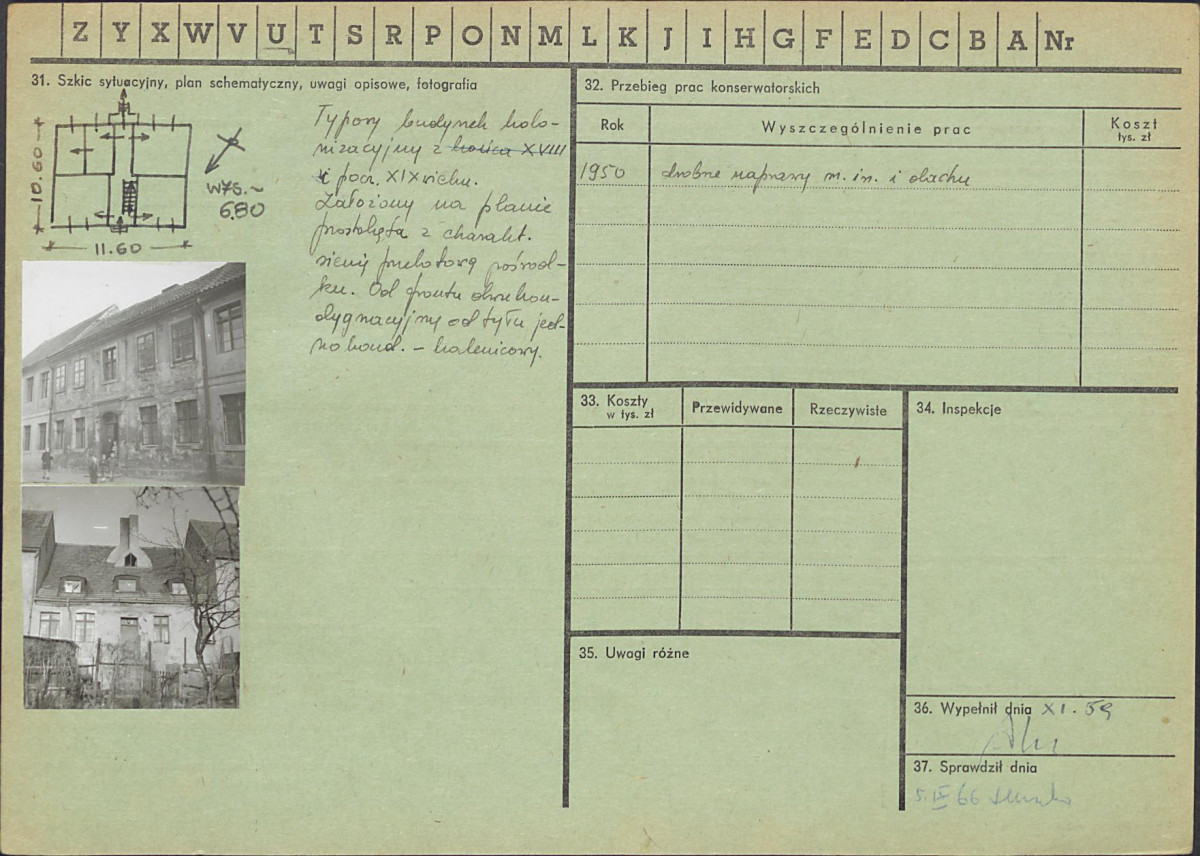 Z Y X W V U T S R P O N M L K J I H G F E D C B A Nr
31. Szkic sytuacyjny, plan schematyczny, uwagi opisowe, fotografia
10.60
11.60
wys. ~
6.80
Typowy budynek kolo-
nizacyjny z końca XVIII
i pocz. XIX wieku.
Założony na planie
prostokąta z charakt.
sienią przelotową pośrod-
ku. Od frontu dwukon-
dygnacyjny od tyłu jed-
nokond. – kalenicowy.
32. Przebieg prac konserwatorskich
Rok
Wyszczególnienie prac
Koszt
tys. zł
1950
drobne naprawy m. in. i dachu
33. Koszty
w tys. zł
Przewidywane
Rzeczywiste
34. Inspekcje
35. Uwagi różne
36. Wypełnił dnia XI. 59
37. Sprawdził dnia
5. IX 66